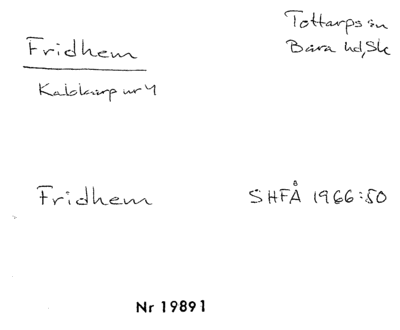 Fridhem
Tottarps sn
Bara hd, Sk
Kabbarp nr 4
Fridhem
SHFÅ 1966:50
Nr 19891